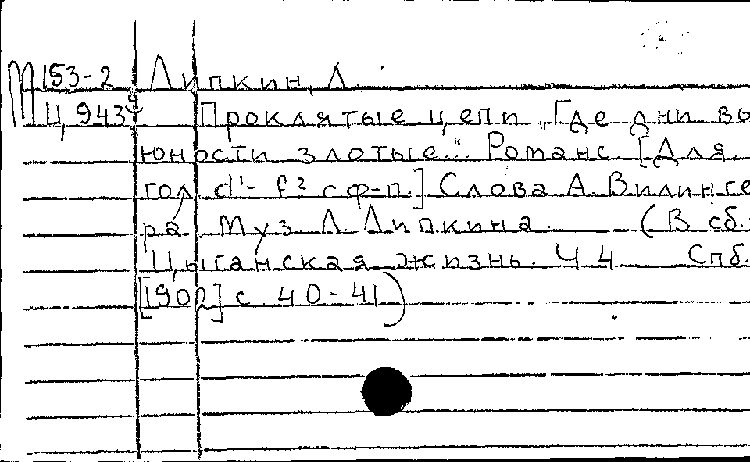 М153-2 Липкин, Л.
Ц943 Проклятые цепи „Где дни вы
юности злотые..." Романс. [Для
гол. d¹- f² с ф-п.] Слова А. Вилинге
ра. Муз Л. Липкина. (В сб.:
Цыганская жизнь. Ч 4 Спб.
[1902] с. 40-41)